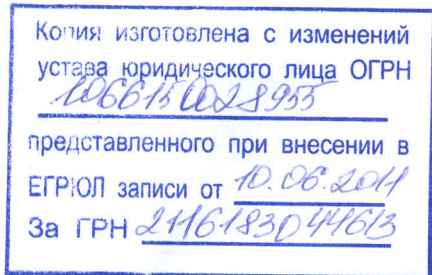 Копия изготовлена с изменений
устава юридического лица ОГРН
1066150028955
представленного при внесении в
ЕГРЮЛ записи от 10.06.2011
За ГРН 2116183044613